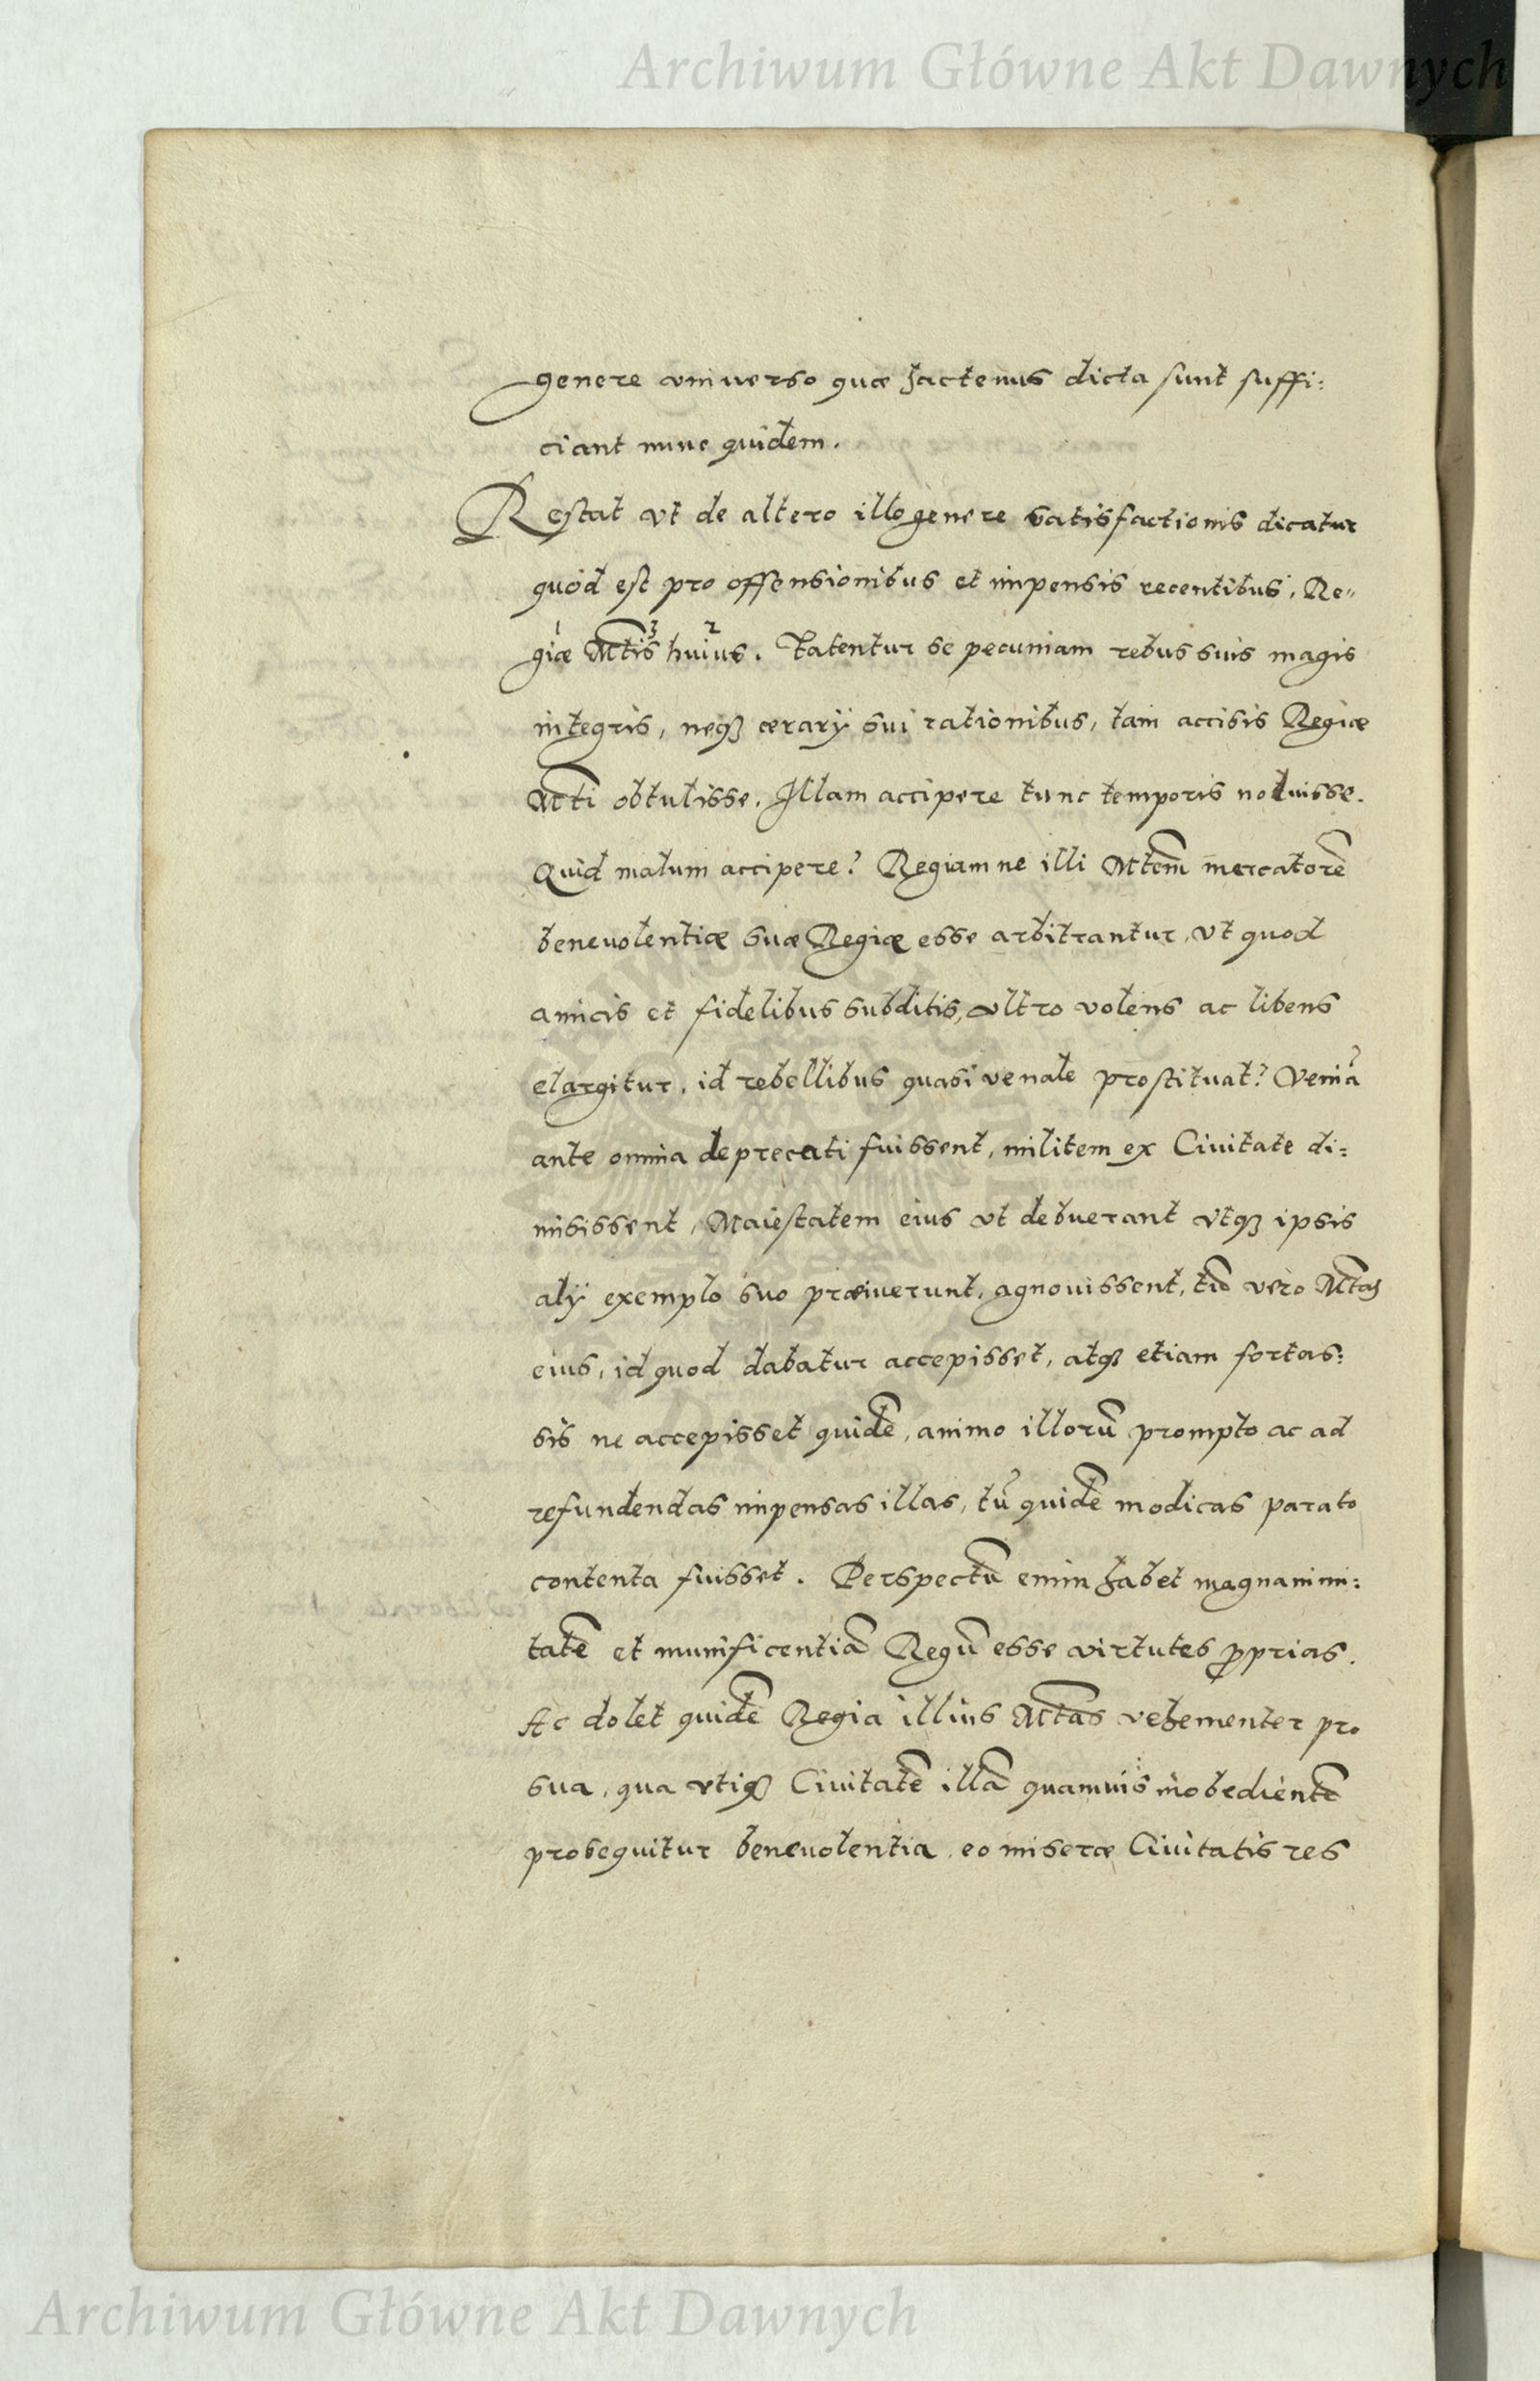 Archiwum Główne Akt Dawnych
genere vniuerso quæ hactenus dicta sunt suffi:
ciant nunc quidem.
Restat vt de altero illo genere satisfactionis dicatur
quod est pro offensionibus et impensis recentibus, Re"
1 3 2
giæ Mtis huius. Fatentur se pecuniam rebus suis magis
integris, neqꝫ ærarÿ sui rationibus, tam accisis Regiæ
Mti obtulisse. Illam accipere tunc temporis noluisse.
Quid malum accipere? Regiamne illi Mtem mercatorē
beneuolentiæ suæ Regiæ esse arbitrantur, vt quod
amicis et fidelibus subditis, vltro volens ac libens
elargitur, id rebellibus quasi venale prostituat? Veniā
ante omnia deprecati fuissent, militem ex Ciuitate di:
misissent, Maiestatem eius vt debuerant vtqꝫ ipsis
alÿ exemplo suo præiuerunt, agnouissent, tū vero Mtas
eius, id quod dabatur accepisset, atqꝫ etiam fortas:
sis ne accepisset quidē, animo illorū prompto ac ad
refundendas impensas illas, tū quidē modicas parato
contenta fuisset. Perspectū enim habet magnanimi:
tatē et munificentiā Regū esse virtutes ꝓprias.
Ac dolet quidē Regia illius Mtas vehementer pro
sua, qua vtiqꝫ Ciuitatē illā quamuis inobedientē
prosequitur beneuolentia, eo miseræ Ciuitatis res
Archiwum Główne Akt Dawnych